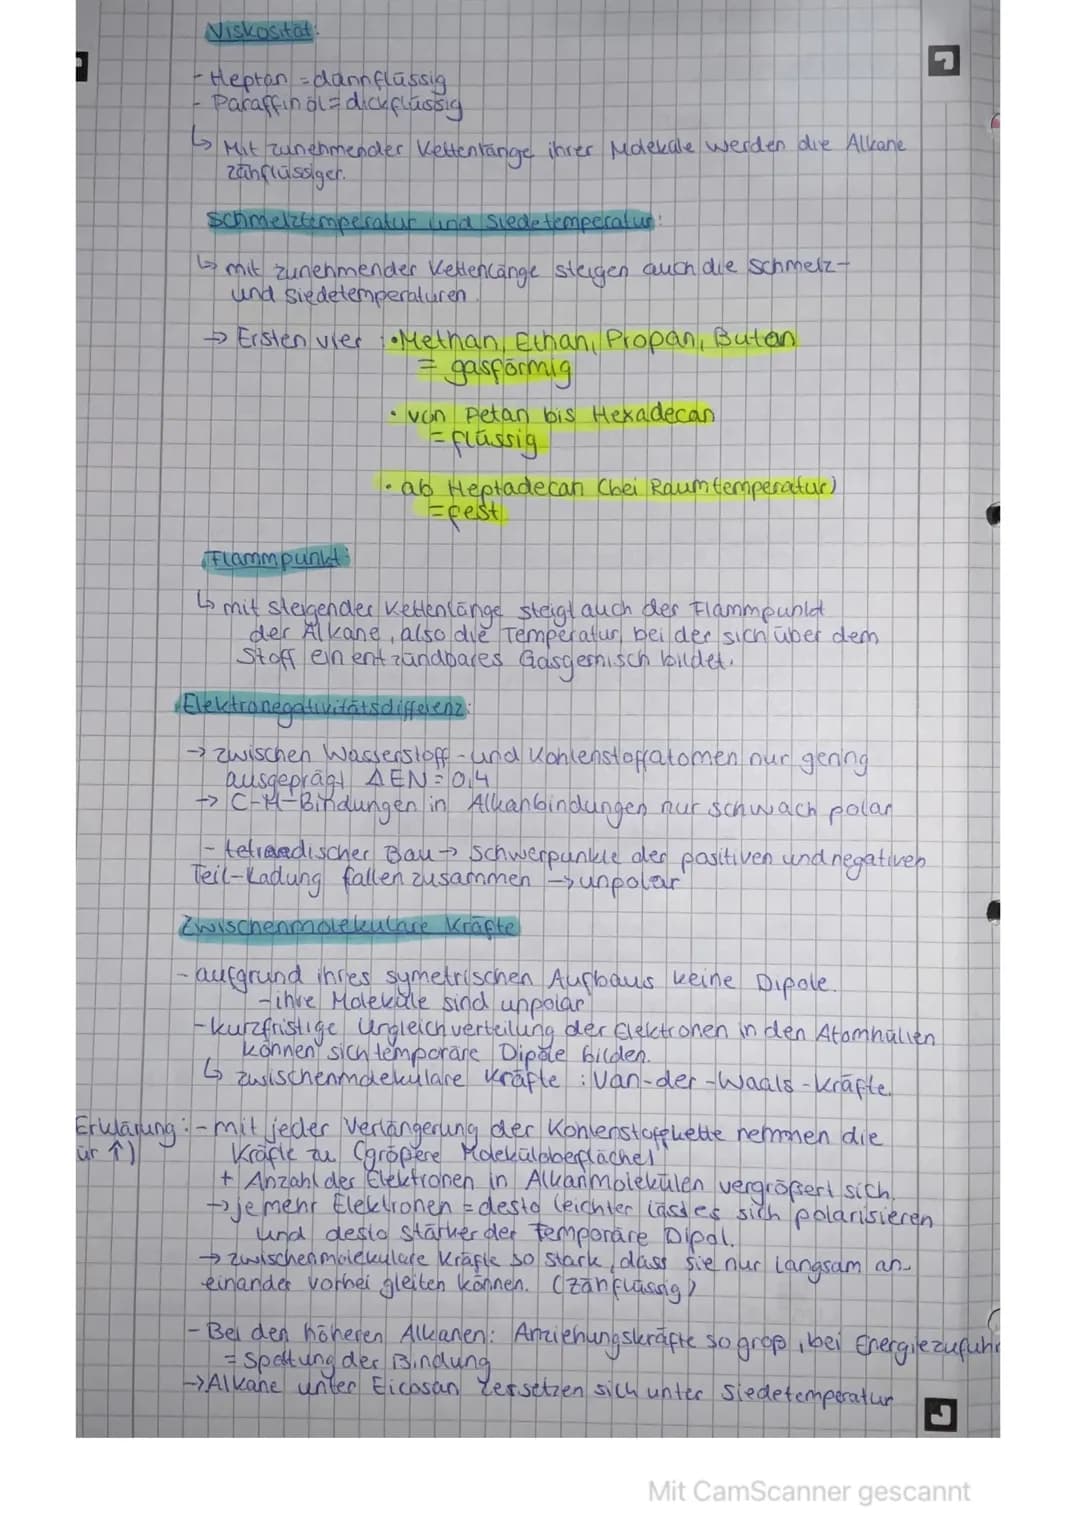 Viskosität:
- Heptan = dünnflüssig
- Paraffinöl = dickflüssig
↳ Mit zunehmender Kettenlänge ihrer Moleküle werden die Alkane
zähflüssiger.
Schmelztemperatur und Siedetemperatur:
↳ mit zunehmender Kettenlänge steigen auch die Schmelz-
und Siedetemperaturen.
→ Ersten vier : • Methan, Ethan, Propan, Butan
= gasförmig
• von Petan bis Hexadecan
= flüssig
• ab Heptadecan (bei Raumtemperatur)
= fest
Flammpunkt:
↳ mit steigender Kettenlänge steigt auch der Flammpunkt
der Alkane, also die Temperatur, bei der sich über dem
Stoff ein entzündbares Gasgemisch bildet.
Elektronegativitätsdifferenz:
→ zwischen Wasserstoff - und Kohlenstoffatomen nur gering
ausgeprägt ΔEN = 0,4
→ C-H-Bindungen in Alkanbindungen nur schwach polar
- tetraedischer Bau → Schwerpunkte der positiven und negativen
Teil-Ladung fallen zusammen → unpolar
Zwischenmolekulare Kräfte
- aufgrund ihres symetrischen Aufbaus keine Dipole.
- ihre Moleküle sind unpolar
- kurzfristige Ungleichverteilung der Elektronen in den Atomhüllen
können sich temporäre Dipole bilden.
↳ zwischenmolekulare Kräfte : Van-der-Waals-Kräfte.
Erklärung: - mit jeder Verlängerung der Kohlenstoffkette nehmen die
ür ↑) Kräfte zu (größere Moleküloberfläche!)
+ Anzahl der Elektronen in Alkanmolekülen vergrößert sich.
→ je mehr Elektronen = desto leichter lässt es sich polarisieren
und desto stärker der temporäre Dipol.
→ zwischenmolekulare Kräfte so stark, dass sie nur langsam an-
einander vorbei gleiten können. (zähflüssig)
- Bei den höheren Alkanen: Anziehungskräfte so groß, bei Energiezufuhr
= Spaltung der Bindung
→ Alkane unter Eicosan zersetzen sich unter Siedetemperatur
Mit CamScanner gescannt